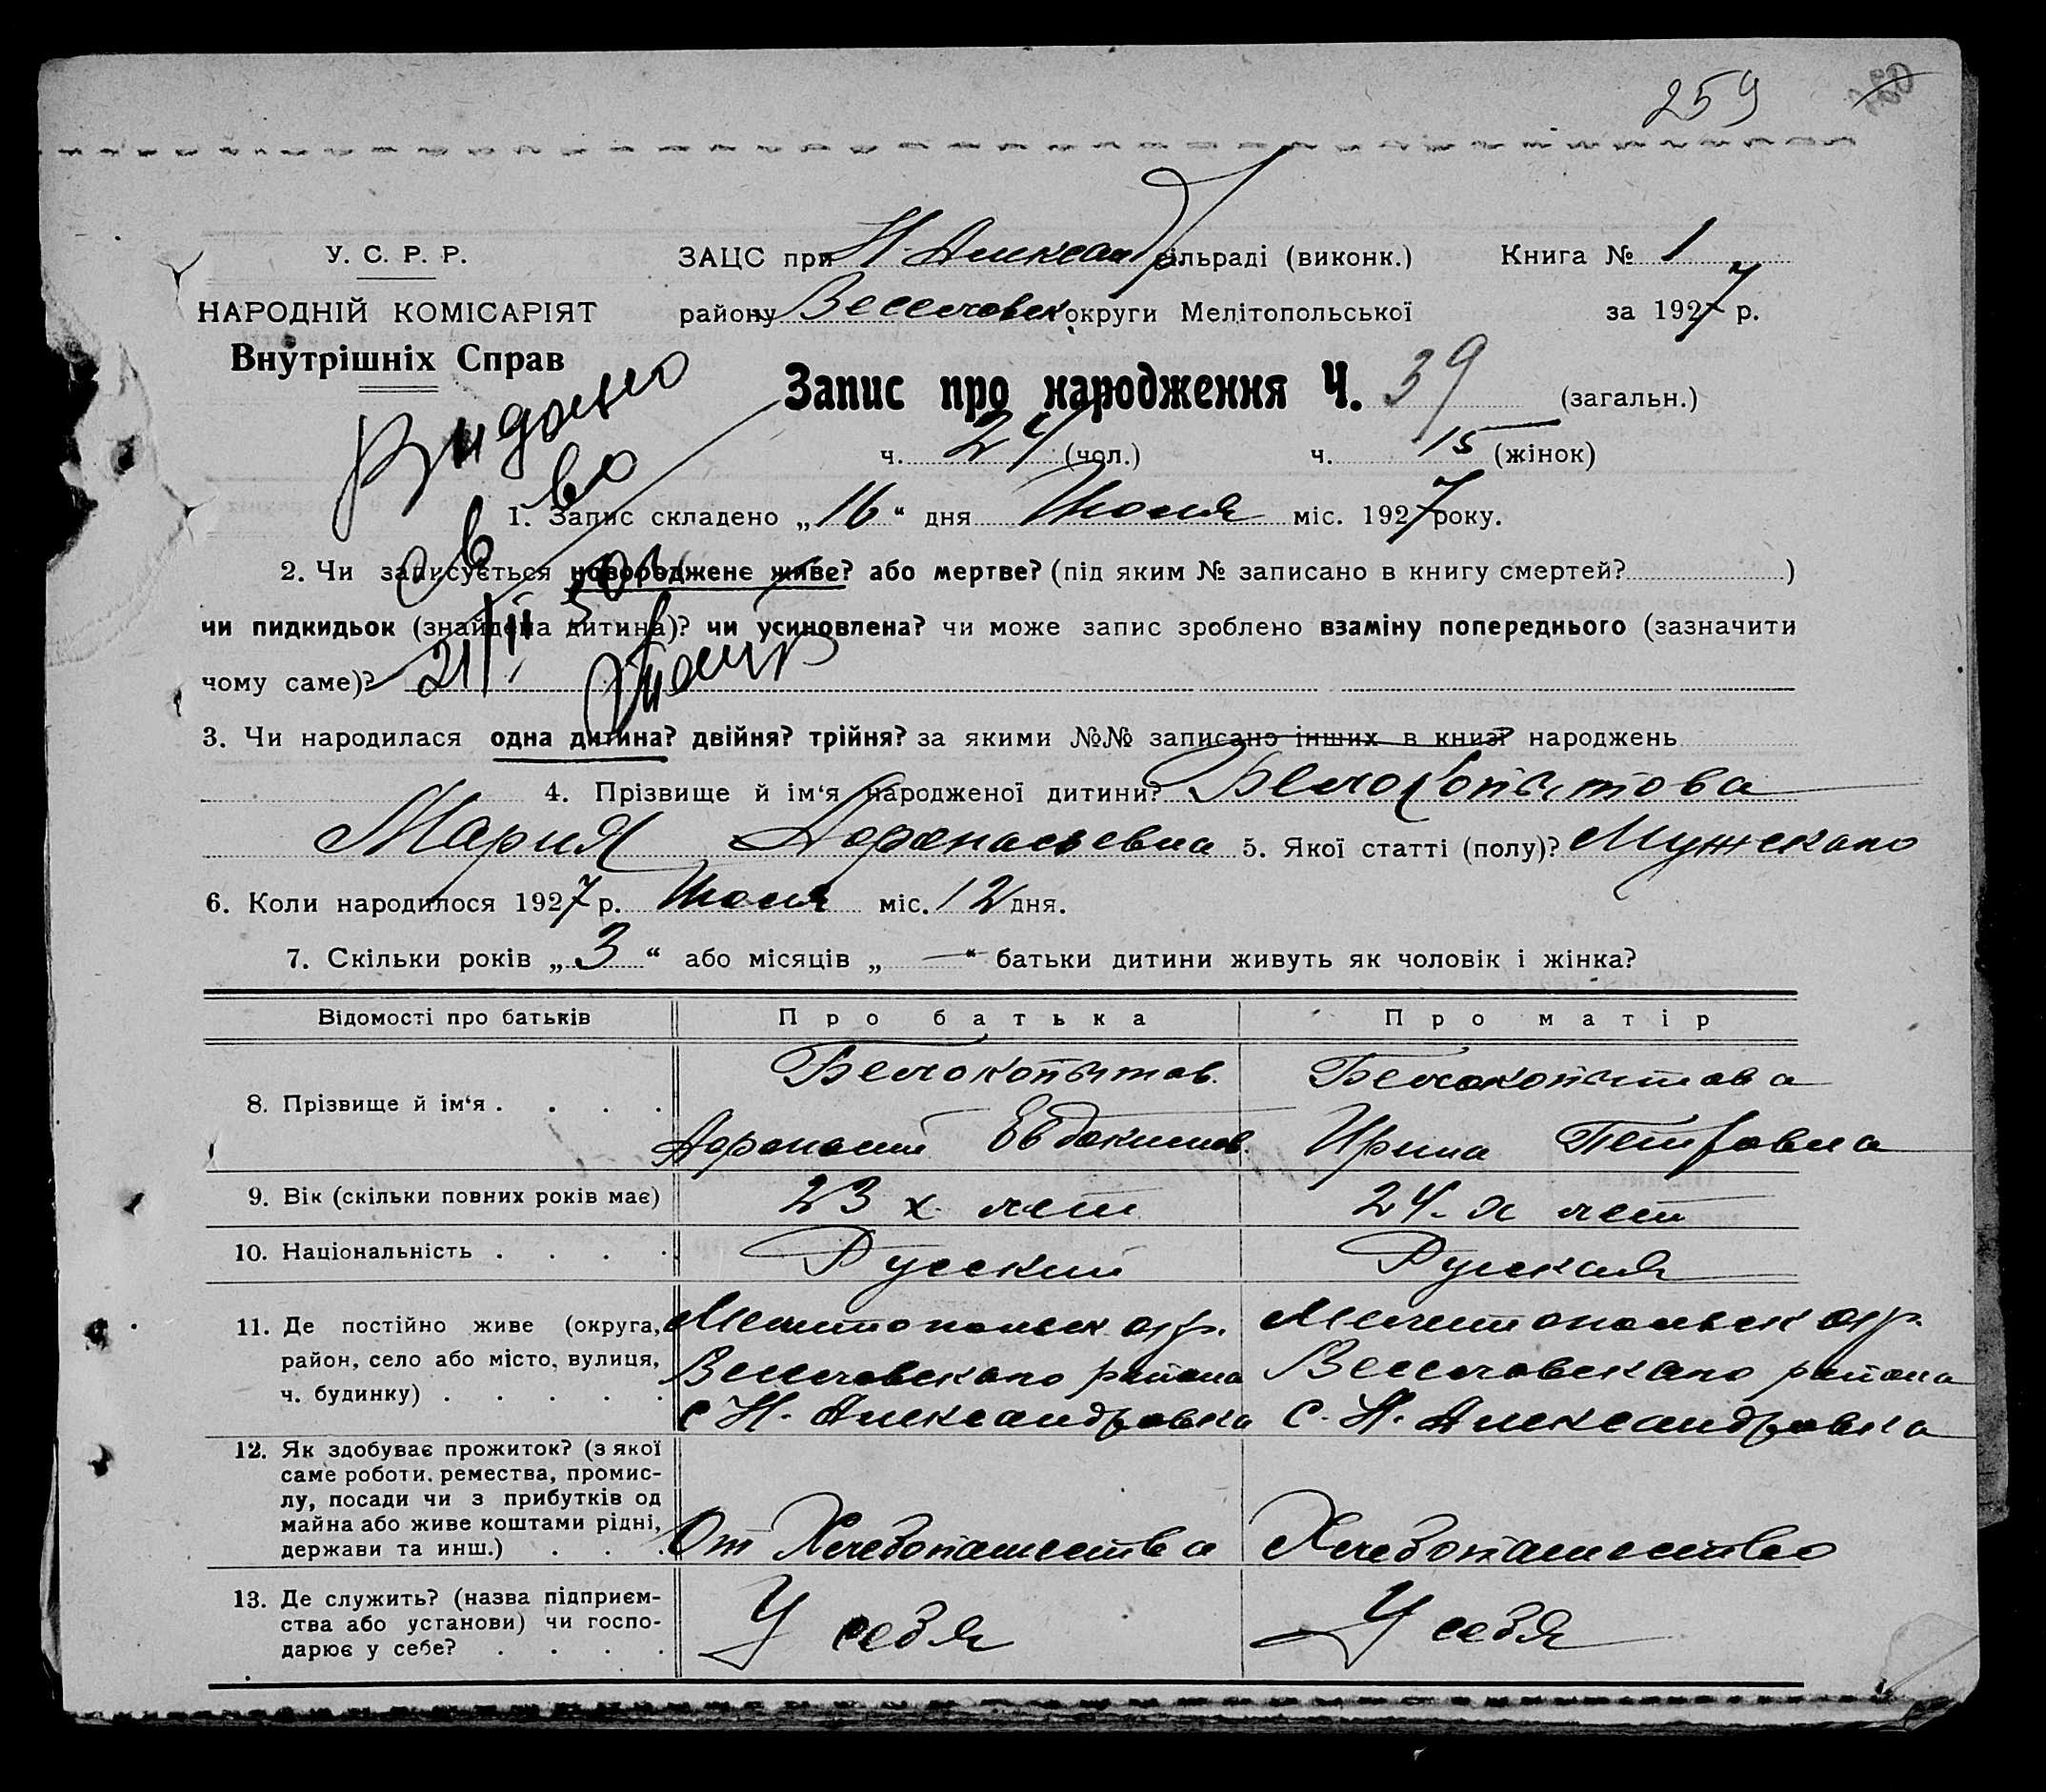 259
У. С. Р. Р.
НАРОДНІЙ КОМІСАРІЯТ
Внутрішніх Справ
ЗАЦС при Н. Александр сільраді (виконк.) Книга № 1
району Веселовск округи Мелітопольської за 1927 р.
Запис про народження Ч. 39 (загальн.)
ч. 24 (чол.) ч. 15 (жінок)
Видано
1. Запис складено „16“ дня Июня міс. 1927 року.
2. Чи записується новороджене живе? або мертве? (під яким № записано в книгу смертей? )
чи пидкидьок (знайдена дитина)? чи усиновлена? чи може запис зроблено взаміну попереднього (зазначити
чому саме)? 21/II
3. Чи народилася одна дитина? двійня? трійня? за якими №№ записано інших в книзі народжень
4. Прізвище й ім‘я народженої дитини? Белокопытова
Мария Афанасьевна 5. Якої статті (полу)? Мужскаго
6. Коли народилося 1927 р. Июня міс. 12 дня.
7. Скільки років „3“ або місяців „—“ батьки дитини живуть як чоловік і жінка?
Відомості про батьків Про батька Про матір
8. Прізвище й ім‘я . . . . Белокопытов. Белокопытова
Афонасий Евдокимов. Ирина Петровна
9. Вік (скільки повних років має) 23 х лет 24-х лет
10. Національність . . . . Русский Руская
11. Де постійно живе (округа, Мелитопольск окр. Мелитопольск окр.
район, село або місто, вулиця, Веселовскаго района Веселовскаго района
ч. будинку) . . . . . с Н. Александровка С. Н. Александровка
12. Як здобуває прожиток? (з якої
саме роботи, ремества, промис-
лу, посади чи з прибутків од
майна або живе коштами рідні,
держави та инш.) . . . От Хлебопашества Хлебопашество
13. Де служить? (назва підприєм-
ства або установи) чи госпо-
дарює у себе? . . . . У себя У себя